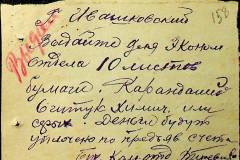 158
Т. Ивашковский
Выдайте для Эконом.
отдела 10 листов
бумаги. Карандашей
6 штук химич. или
Деньги будут
уплочено по предъяв счета